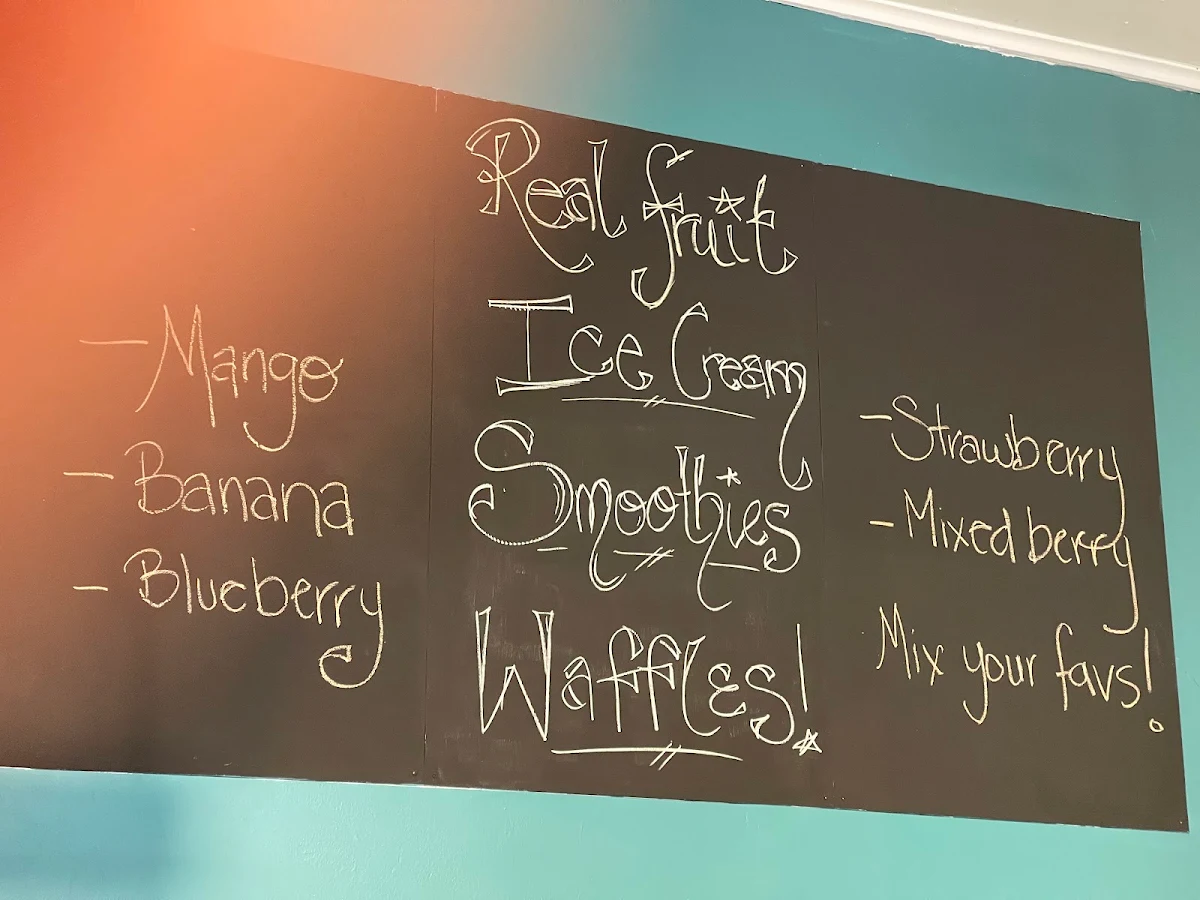 - Mango
- Banana
- Blueberry
Real fruit
Ice Cream
Smoothies
Waffles!
- Strawberry
- Mixed berry
Mix your favs!